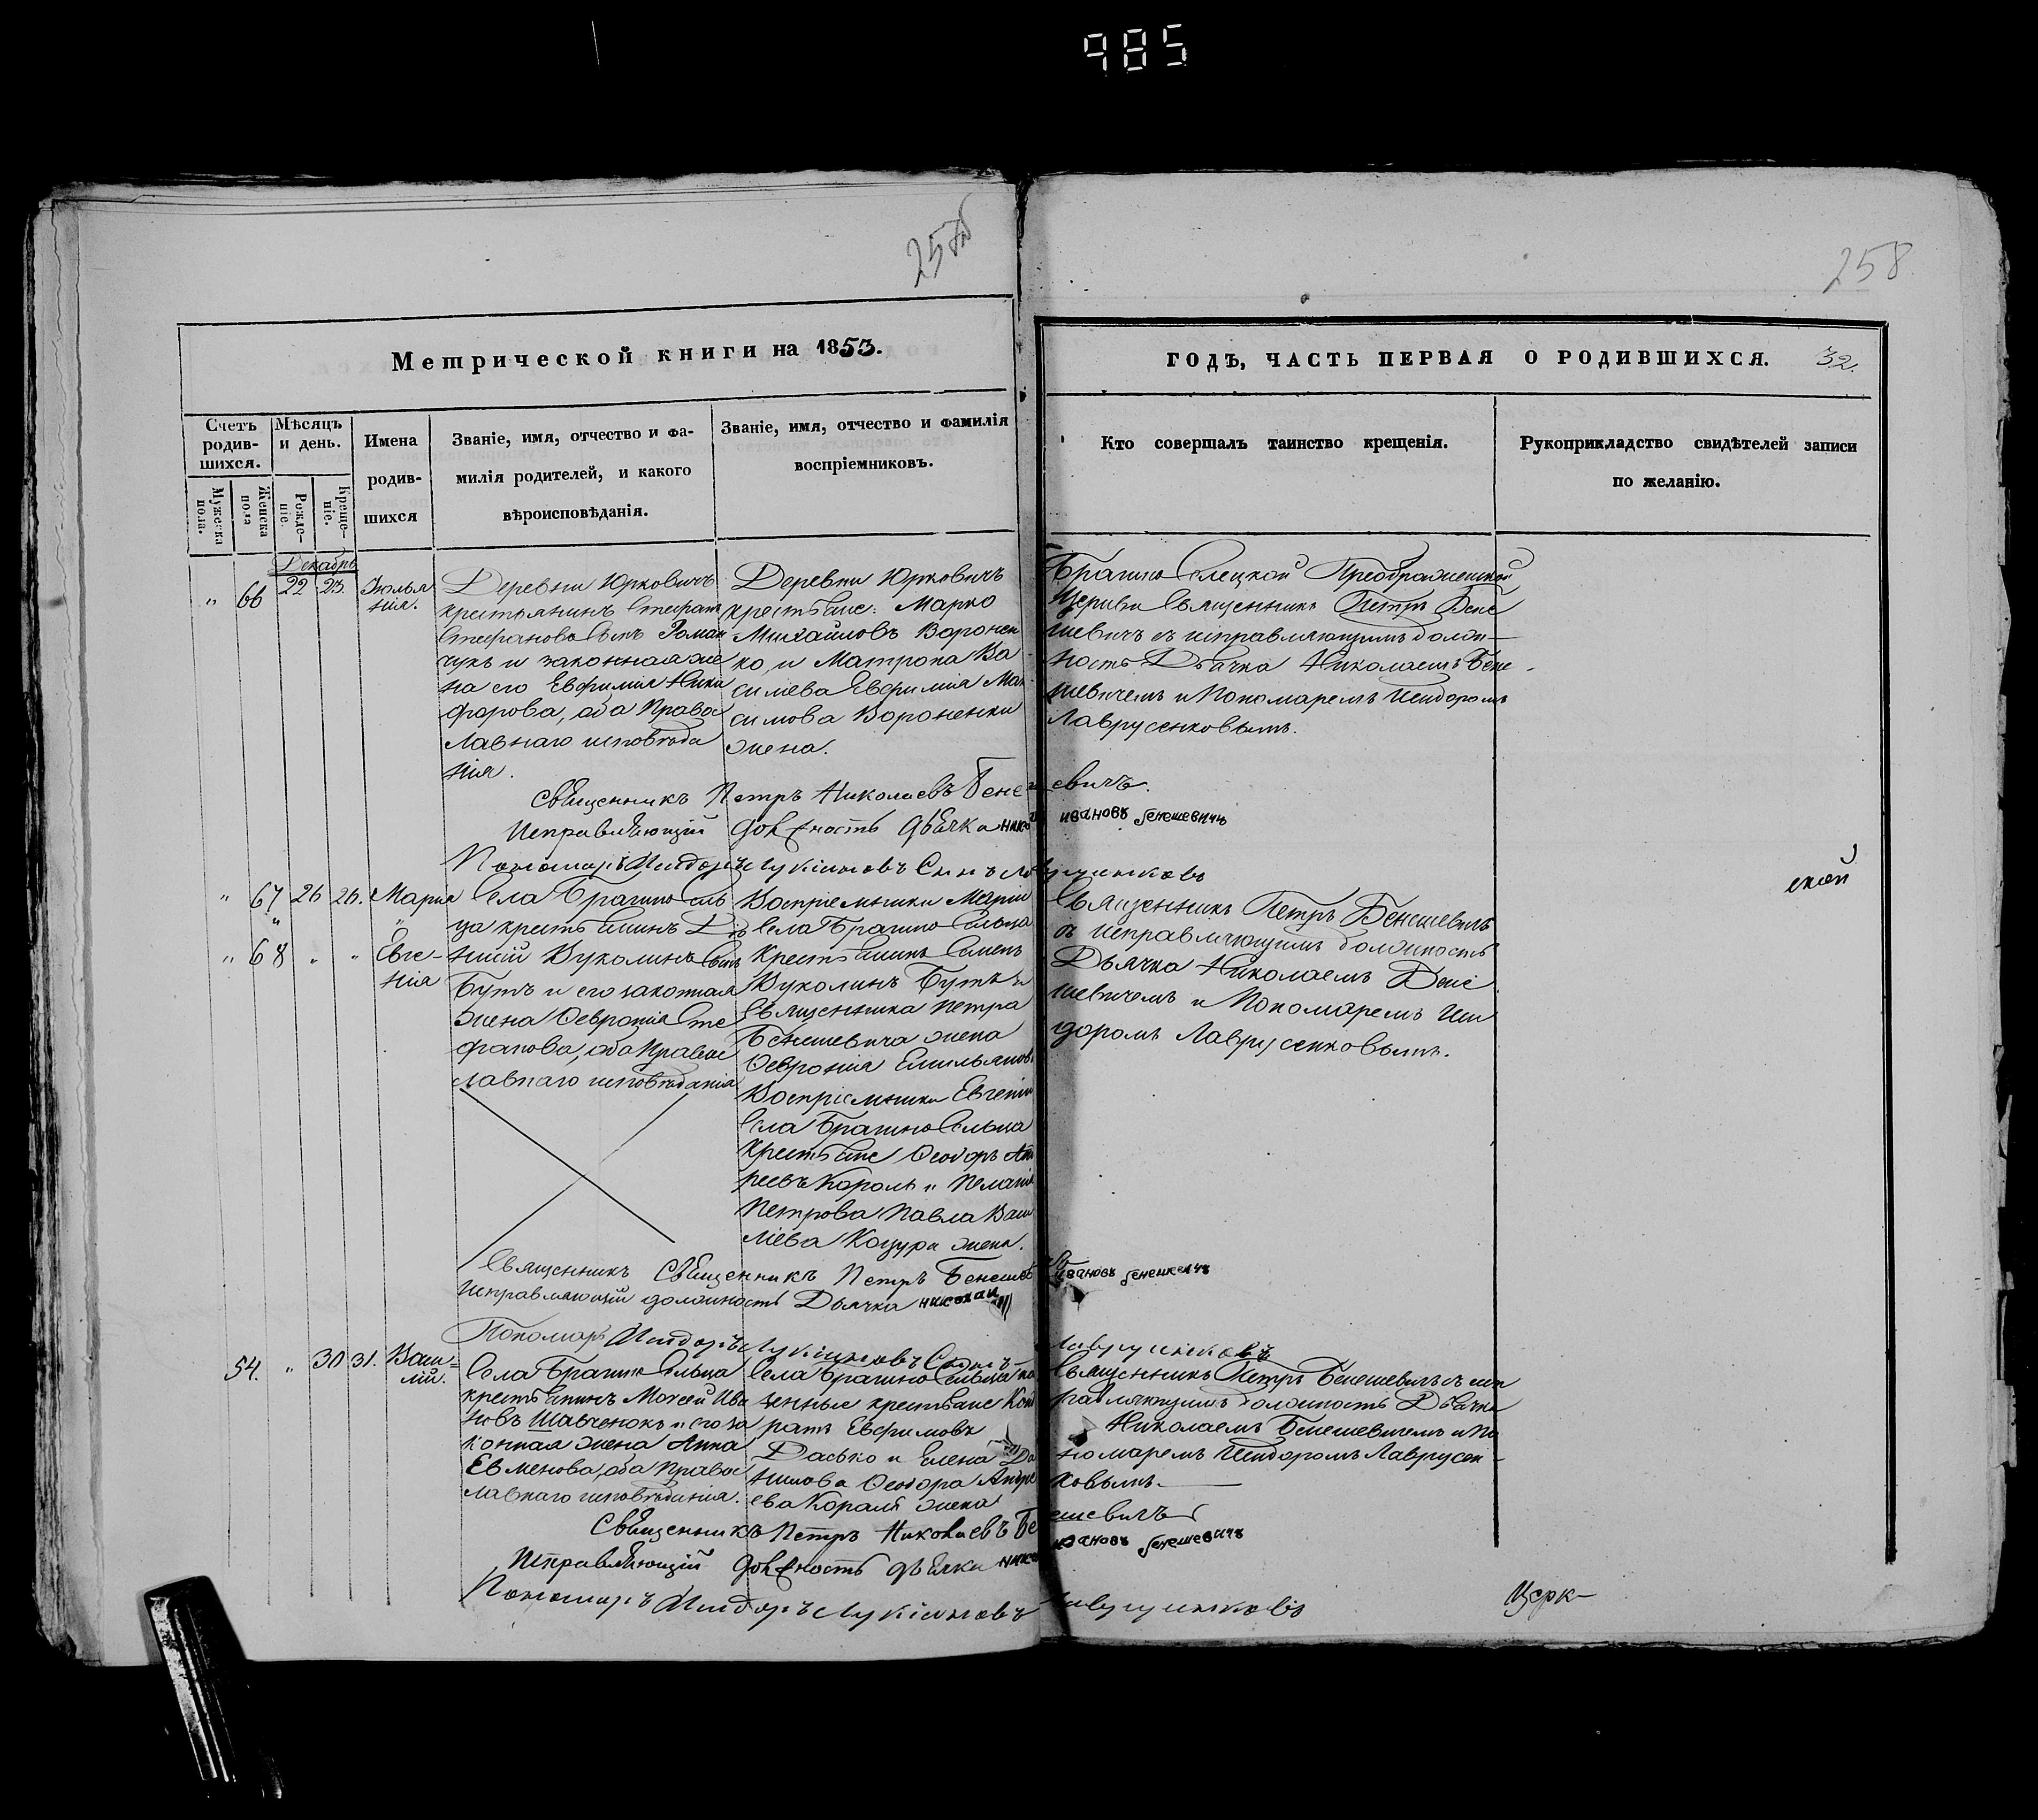 985
258
258
Метрической книги на 1853.
ГОДЪ, ЧАСТЬ ПЕРВАЯ О РОДИВШИХСЯ. 32.
Счетъ родив- шихся.
Мѣсяцъ и день.
Имена родив- шихся
Званіе, имя, отчество и фа-
милія родителей, и какого
вѣроисповѣданія.
Званіе, имя, отчество и фамилія
воспріемниковъ.
Кто совершалъ таинство крещенія.
Рукоприкладство свидѣтелей записи
по желанію.
Мужеска пола.
Женска пола
Рожде- ніе.
Креще- ніе.
Декабрь
" 66 22 23. Іюлья
нія.
Деревни Юрковичъ
крестьянинъ Стефанъ
Стефановъ сынъ Роман
чукъ и законная же
на его Евфимія Ники
форова, оба Правос
лавнаго исповѣда
нія.
Деревни Юрковичъ
крестьяне: Марко
Михайловъ Воронен
ко, и Матрона Ва
силева Евфимія Мак
симова Вороненки
жена.
Брагино Селецкой Преображенской
Церкви Священникъ Петръ Бене
шевичъ съ исправляющимъ долж-
ность Дьячка Николаемъ Бене-
шевичемъ и Пономаремъ Исидоромъ
Лаврусенковымъ.
Священникъ Петръ Николаевъ Бенешевичъ.
Исправляющий должность дьячка никол ивановъ бенешевичъ
Пономарь Исидоръ Лукіяновъ Сынъ
" 67 26 26. Марія
" 68 " " Евге-
нія
Села Брагино Сель
ца крестьянинъ Ди
нисій Вуколинъ Сынъ
Бутъ и его законная
жена Февронія Сте
фанова, оба Правос
лавнаго исповѣданія
Воспріемники Маріи
Села Брагино Сельца
Крестьянинъ Семенъ
Вуколинъ Бутъ и
Священника Петра
Бенешевича жена
Февронія Емильянов
Воспріемники Евгеніи
Села Брагино Сельца
Крестьяне Феодоръ Анд
реевъ Король и Пелагія
Петрова Павла Васи
лієва Коцури жена.
Священникъ Петръ Бенешевичъ
съ исправляющимъ должность
Дьячка Николаемъ Бене
шевичемъ и Пономаремъ Иси
доромъ Лаврусенковымъ.
ской
Священникъ Священникъ Петръ Бенешев
Исправляющій должность Дьячка николай ивановъ бенешевичъ
Пономарь Исидоръ Лукіяновъ Сынъ
54. " 30 31. Васи=
лій.
Села Брагино Сельца
крестьянинъ Моисей Ива
новъ Шавченокъ и его за
конная жена Анна
Евменова, оба Правос
лавнаго исповѣданія.
Села Брагино Сельца ка
зенные крестьяне Конд
ратъ Евфимовъ
Дасько и Елена Да
нилова Феодора Андре
ева Короля жена
Священникъ Петръ Бенешевичъ съ исп
равляющимъ должность Дьячка
Николаемъ Бенешевичемъ и По
номаремъ Исидоромъ Лаврусен-
ковымъ.
Священникъ Петръ Николаевъ Бенешевичъ
Исправляющий должность дьячка никол ивановъ бенешевичъ
Пономарь Исидоръ Лукіяновъ
Церк-